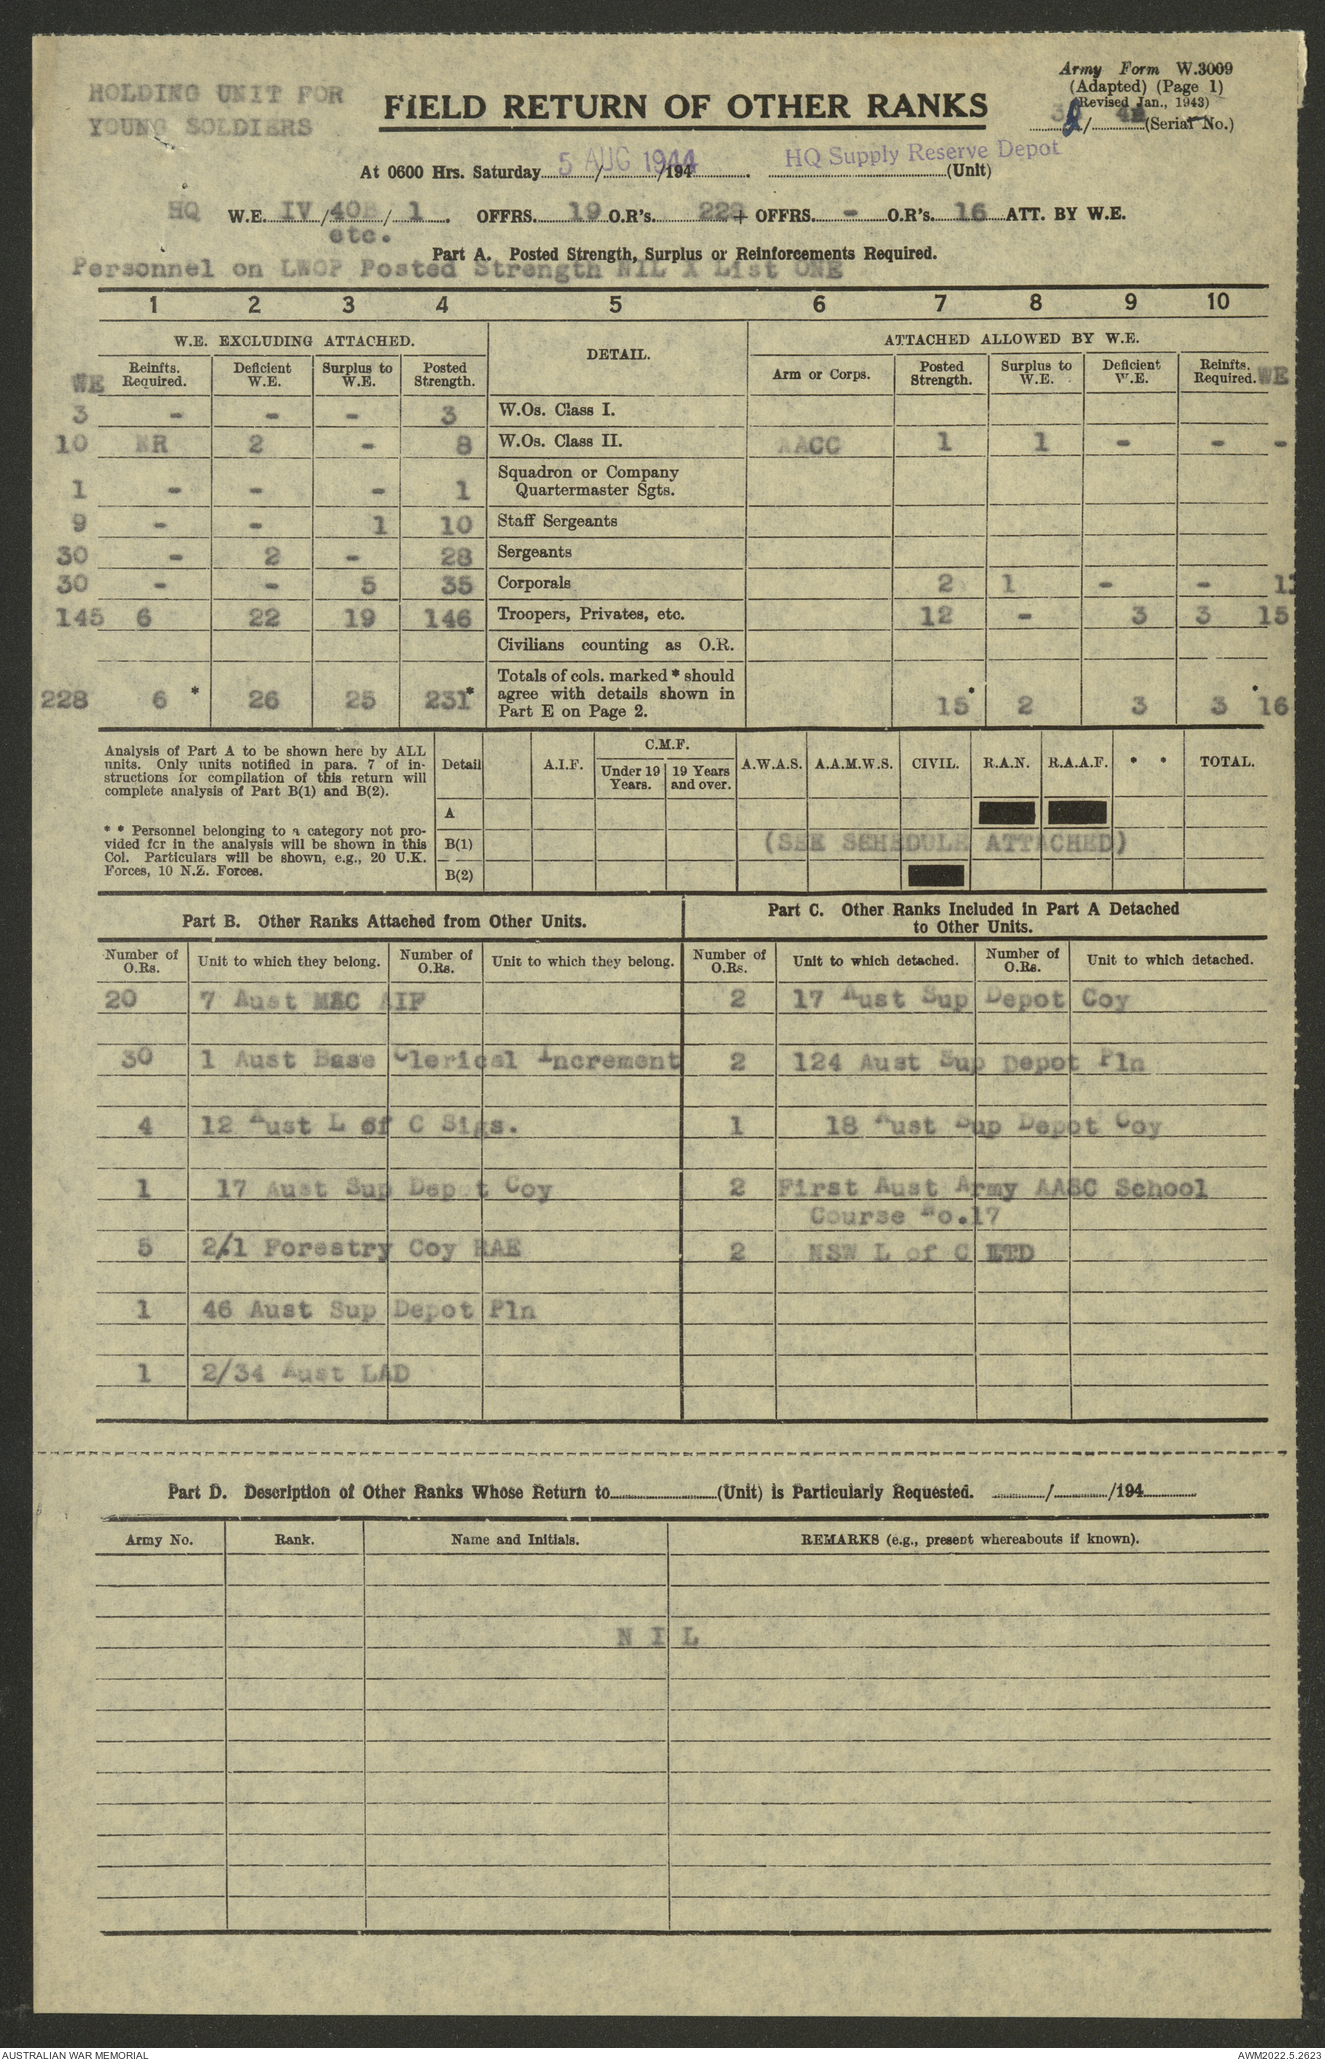 HOLDING UNIT FOR
YOUNG SOLDIERS
FIELD RETURN OF OTHER RANKS
Army Form W.3009
(Adapted) (Page 1)
(Revised Jan., 1943)
(Serial No.)
At 0600 Hrs. Saturday 5 AUG 1944 /194 . HQ Supply Reserve Depot (Unit)
HQ W.E. IV /40B/ 1 . OFFRS. 19 O.R's. 228 + OFFRS. - O.R's. 16 ATT. BY W.E.
etc.
Part A. Posted Strength, Surplus or Reinforcements Required.
Personnel on LWOP Posted Strength NIL X List ONE
1 2 3 4 5 6 7 8 9 10
W.E. EXCLUDING ATTACHED. DETAIL. ATTACHED ALLOWED BY W.E.
WE Reinfts. Required. Deficient W.E. Surplus to W.E. Posted Strength. Arm or Corps. Posted Strength. Surplus to W.E. Deficient W.E. Reinfts. Required. WE
3 - - - 3 W.Os. Class I.
10 NR 2 - 8 W.Os. Class II. AACC 1 1 - - -
1 - - - 1 Squadron or Company Quartermaster Sgts.
9 - - 1 10 Staff Sergeants
30 - 2 - 28 Sergeants
30 - - 5 35 Corporals 2 1 - - 1
145 6 22 19 146 Troopers, Privates, etc. 12 - 3 3 15
Civilians counting as O.R.
228 6 * 26 25 231* Totals of cols. marked * should agree with details shown in Part E on Page 2. 15* 2 3 3 * 16
Analysis of Part A to be shown here by ALL
units. Only units notified in para. 7 of in-
structions for compilation of this return will
complete analysis of Part B(1) and B(2).
* * Personnel belonging to a category not pro-
vided for in the analysis will be shown in this
Col. Particulars will be shown, e.g., 20 U.K.
Forces, 10 N.Z. Forces.
Detail A.I.F. C.M.F. Under 19 Years. 19 Years and over. A.W.A.S. A.A.M.W.S. CIVIL. R.A.N. R.A.A.F. * * TOTAL.
A
B(1) (SEE SCHEDULE ATTACHED)
B(2)
Part B. Other Ranks Attached from Other Units.
Part C. Other Ranks Included in Part A Detached
to Other Units.
Number of O.Rs. Unit to which they belong. Number of O.Rs. Unit to which they belong. Number of O.Rs. Unit to which detached. Number of O.Rs. Unit to which detached.
20 7 Aust MAC AIF 2 17 Aust Sup Depot Coy
30 1 Aust Base Clerical Increment 2 124 Aust Sup Depot Pln
4 12 Aust L of C Sigs. 1 18 Aust Sup Depot Coy
1 17 Aust Sup Depot Coy 2 First Aust Army AASC School
Course No.17
5 2/1 Forestry Coy RAE 2 NSW L of C LTD
1 46 Aust Sup Depot Pln
1 2/34 Aust LAD
Part D. Description of Other Ranks Whose Return to (Unit) is Particularly Requested. / /194
Army No. Rank. Name and Initials. REMARKS (e.g., present whereabouts if known).
N I L
AUSTRALIAN WAR MEMORIAL
AWM2022.5.2623